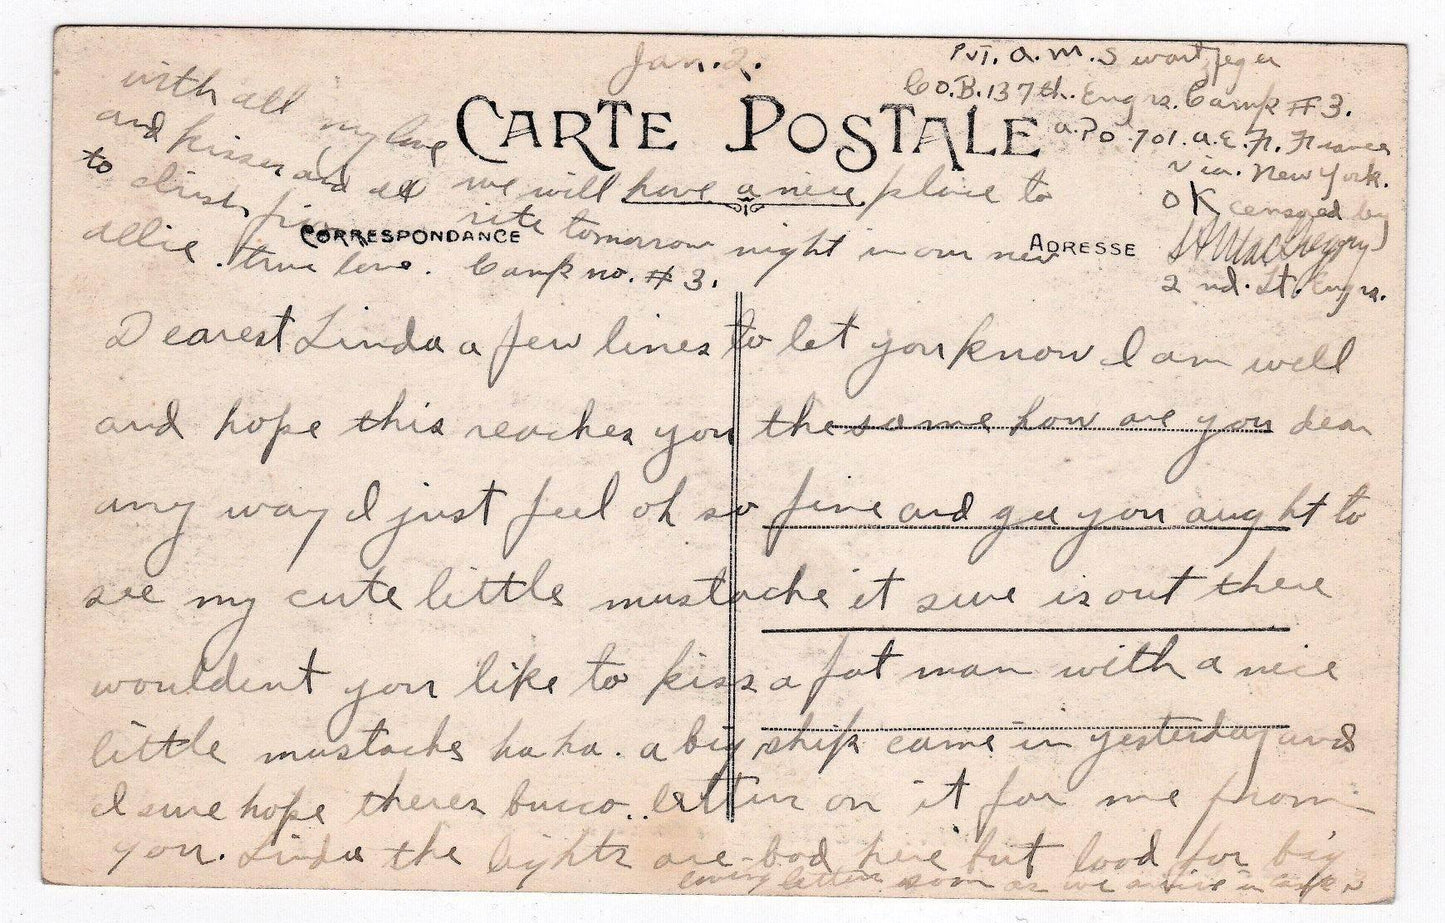 Jan. 2.
Pvt. A. M. Swartfeger
Co. B. 137th. Engrs. Camp #3.
A.P.O. 701. A.E.F. France
Via. New York.
OK censored by
MacGregory
2nd. Lt. Engrs.
CARTE POSTALE
CORRESPONDANCE
ADRESSE
Dearest Linda a few lines to let you know I am well
and hope this reaches you the same how are you dear
any way I just feel oh so fine and gee you aught to
see my cute little mustache it sure is out there
wouldent you like to kiss a fat man with a nice
little mustache ha ha. a big ship came in yesterday and
I sure hope theres bucco.. letters on it for me from
you. Linda the lights are bad here but lood for big
loving letter soon as we arrive in camp 3
we will have a nice place to
rite tomorrow night in our new
Camp no. #3.
with all my love
and kisses and all
to dearest from
Allie. true love.